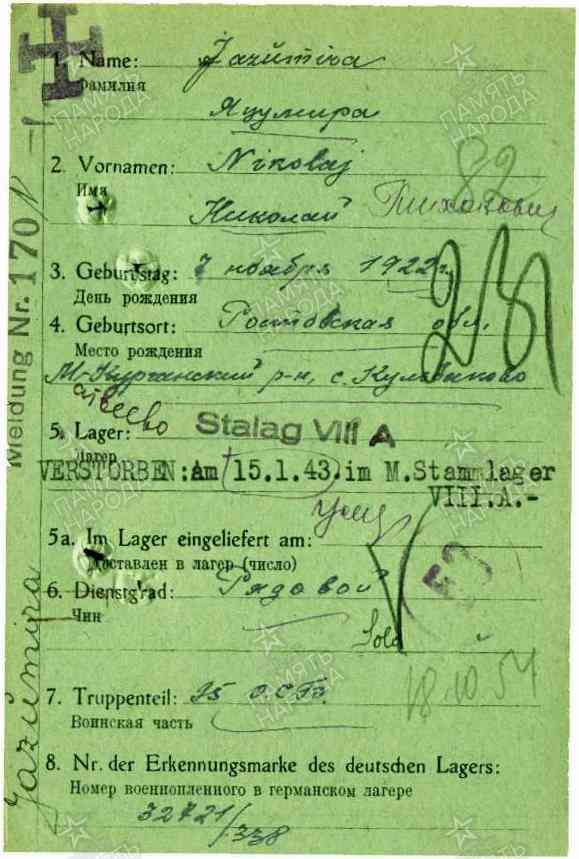 1. Name: Jazümira
Фамилия
Яцумира
2. Vornamen: Nikolaj
Имя
Николай Тихонович
82
3. Geburtstag: 7 ноября 1922 г.
День рождения
4. Geburtsort: Ростовская обл,
Место рождения
М-Курганский р-н, с. Кульбаково
атвеево
5. Lager: Stalag VIII A
Лагер
VERSTORBEN: Am 15.1.43. im M.Stammlager
VIII.A.-
5a. Im Lager eingeliefert am:
Доставлен в лагер (число)
6. Dienstgrad: Рядовой
Чин
Sold
18.10.54
7. Truppenteil: 95
Воинская часть
8. Nr. der Erkennungsmarke des deutschen Lagers:
Номер военнопленного в германском лагере
32721/338
Meldung Nr. 170
Jazümira
ПАМЯТЬ НАРОДА